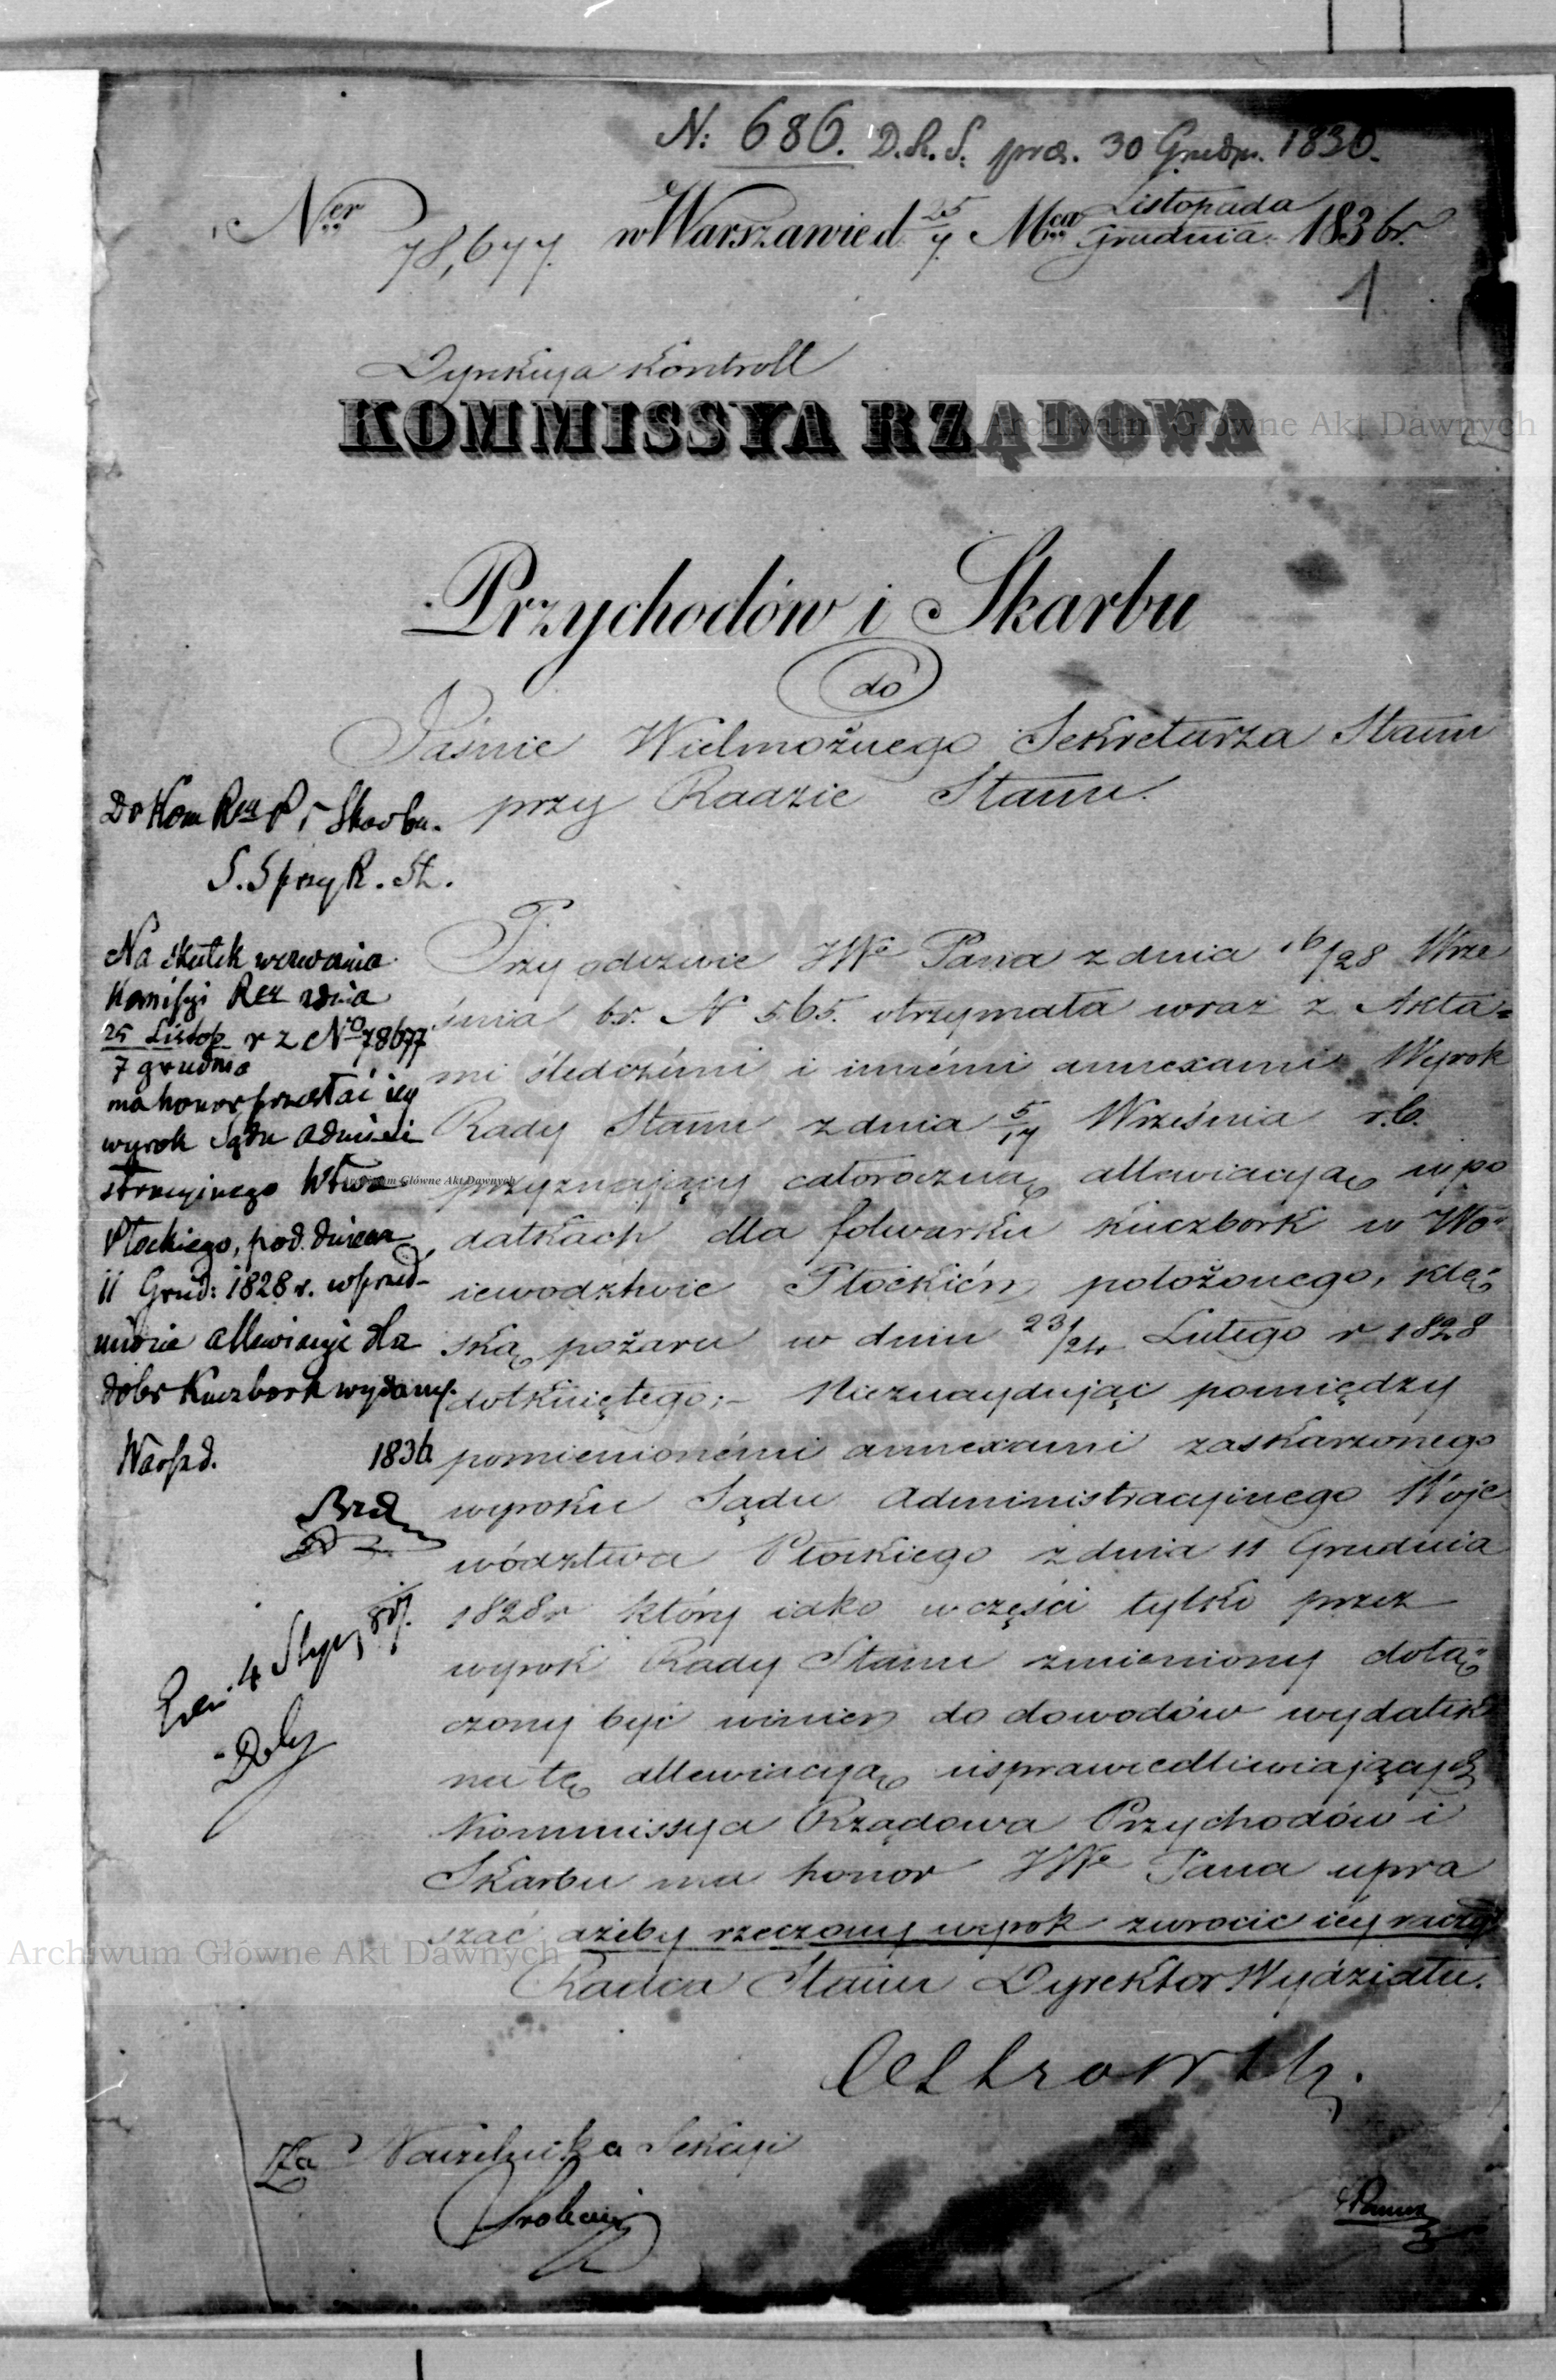 N: 686. D.R.S. prez. 30 Grudn. 1836.
Ner 78,677. w Warszawie d 25/7. Mca Listopada/Grudnia 1836 r.
1
Dyrekcya Kontroll
KOMMISSYA RZĄDOWA
Przychodów i Skarbu
do
Jaśnie Wielmożnego Sekretarza Stanu
przy Radzie Stanu.
Do Kom Rzą P i Skarbu.
S. S przy R. St.
Na skutek wezwania
Komisyi Rzą z dnia
25 Listop/7 grudnia r z No 78677
ma honor przesłać iey
wyrok Sądu Admini
stracyinego Wtwa
Płockiego, pod dniem
11 Grud: 1828 r. w przed-
miocie allewiacyi dla
dobr Kuczbork wydany.
Warsz d. 1836
4 Stycz 837.
Przy odezwie JWo Pana z dnia 16/28 Wrze
śnia br. N 565. otrzymała wraz z Akta=
mi śledczémi i innémi annexami Wyrok
Rady Stanu z dnia 5/17 Września r.b.
przyznający całoroczną allewiacyą w po
datkach dla folwarku Kuczbork w Wo=
iewodztwie Płockiém położonego, klę=
ską pożaru w dniu 23/24 Lutego r 1828
dotkniętego;- Nieznaydując pomiędzy
pomienionémi annexami zaskarżonego
wyroku Sądu Administracyinego Woje
wództwa Płockiego z dnia 11 Grudnia
1828 r który iako w części tylko przez
wyrok Rady Stanu zmieniony dołą=
czony być winien do dowodów wydatek
na tę allewiacyą usprawiedliwiaiących
Kommissya Rządowa Przychodów i
Skarbu ma honor JWo Pana upra
szać ażeby rzeczony wyrok zwrócić iéy raczył
Radca Stanu Dyrektor Wydziału.
Za Naczelnika Sekcyi
Archiwum Główne Akt Dawnych
Archiwum Główne Akt Dawnych
Archiwum Główne Akt Dawnych